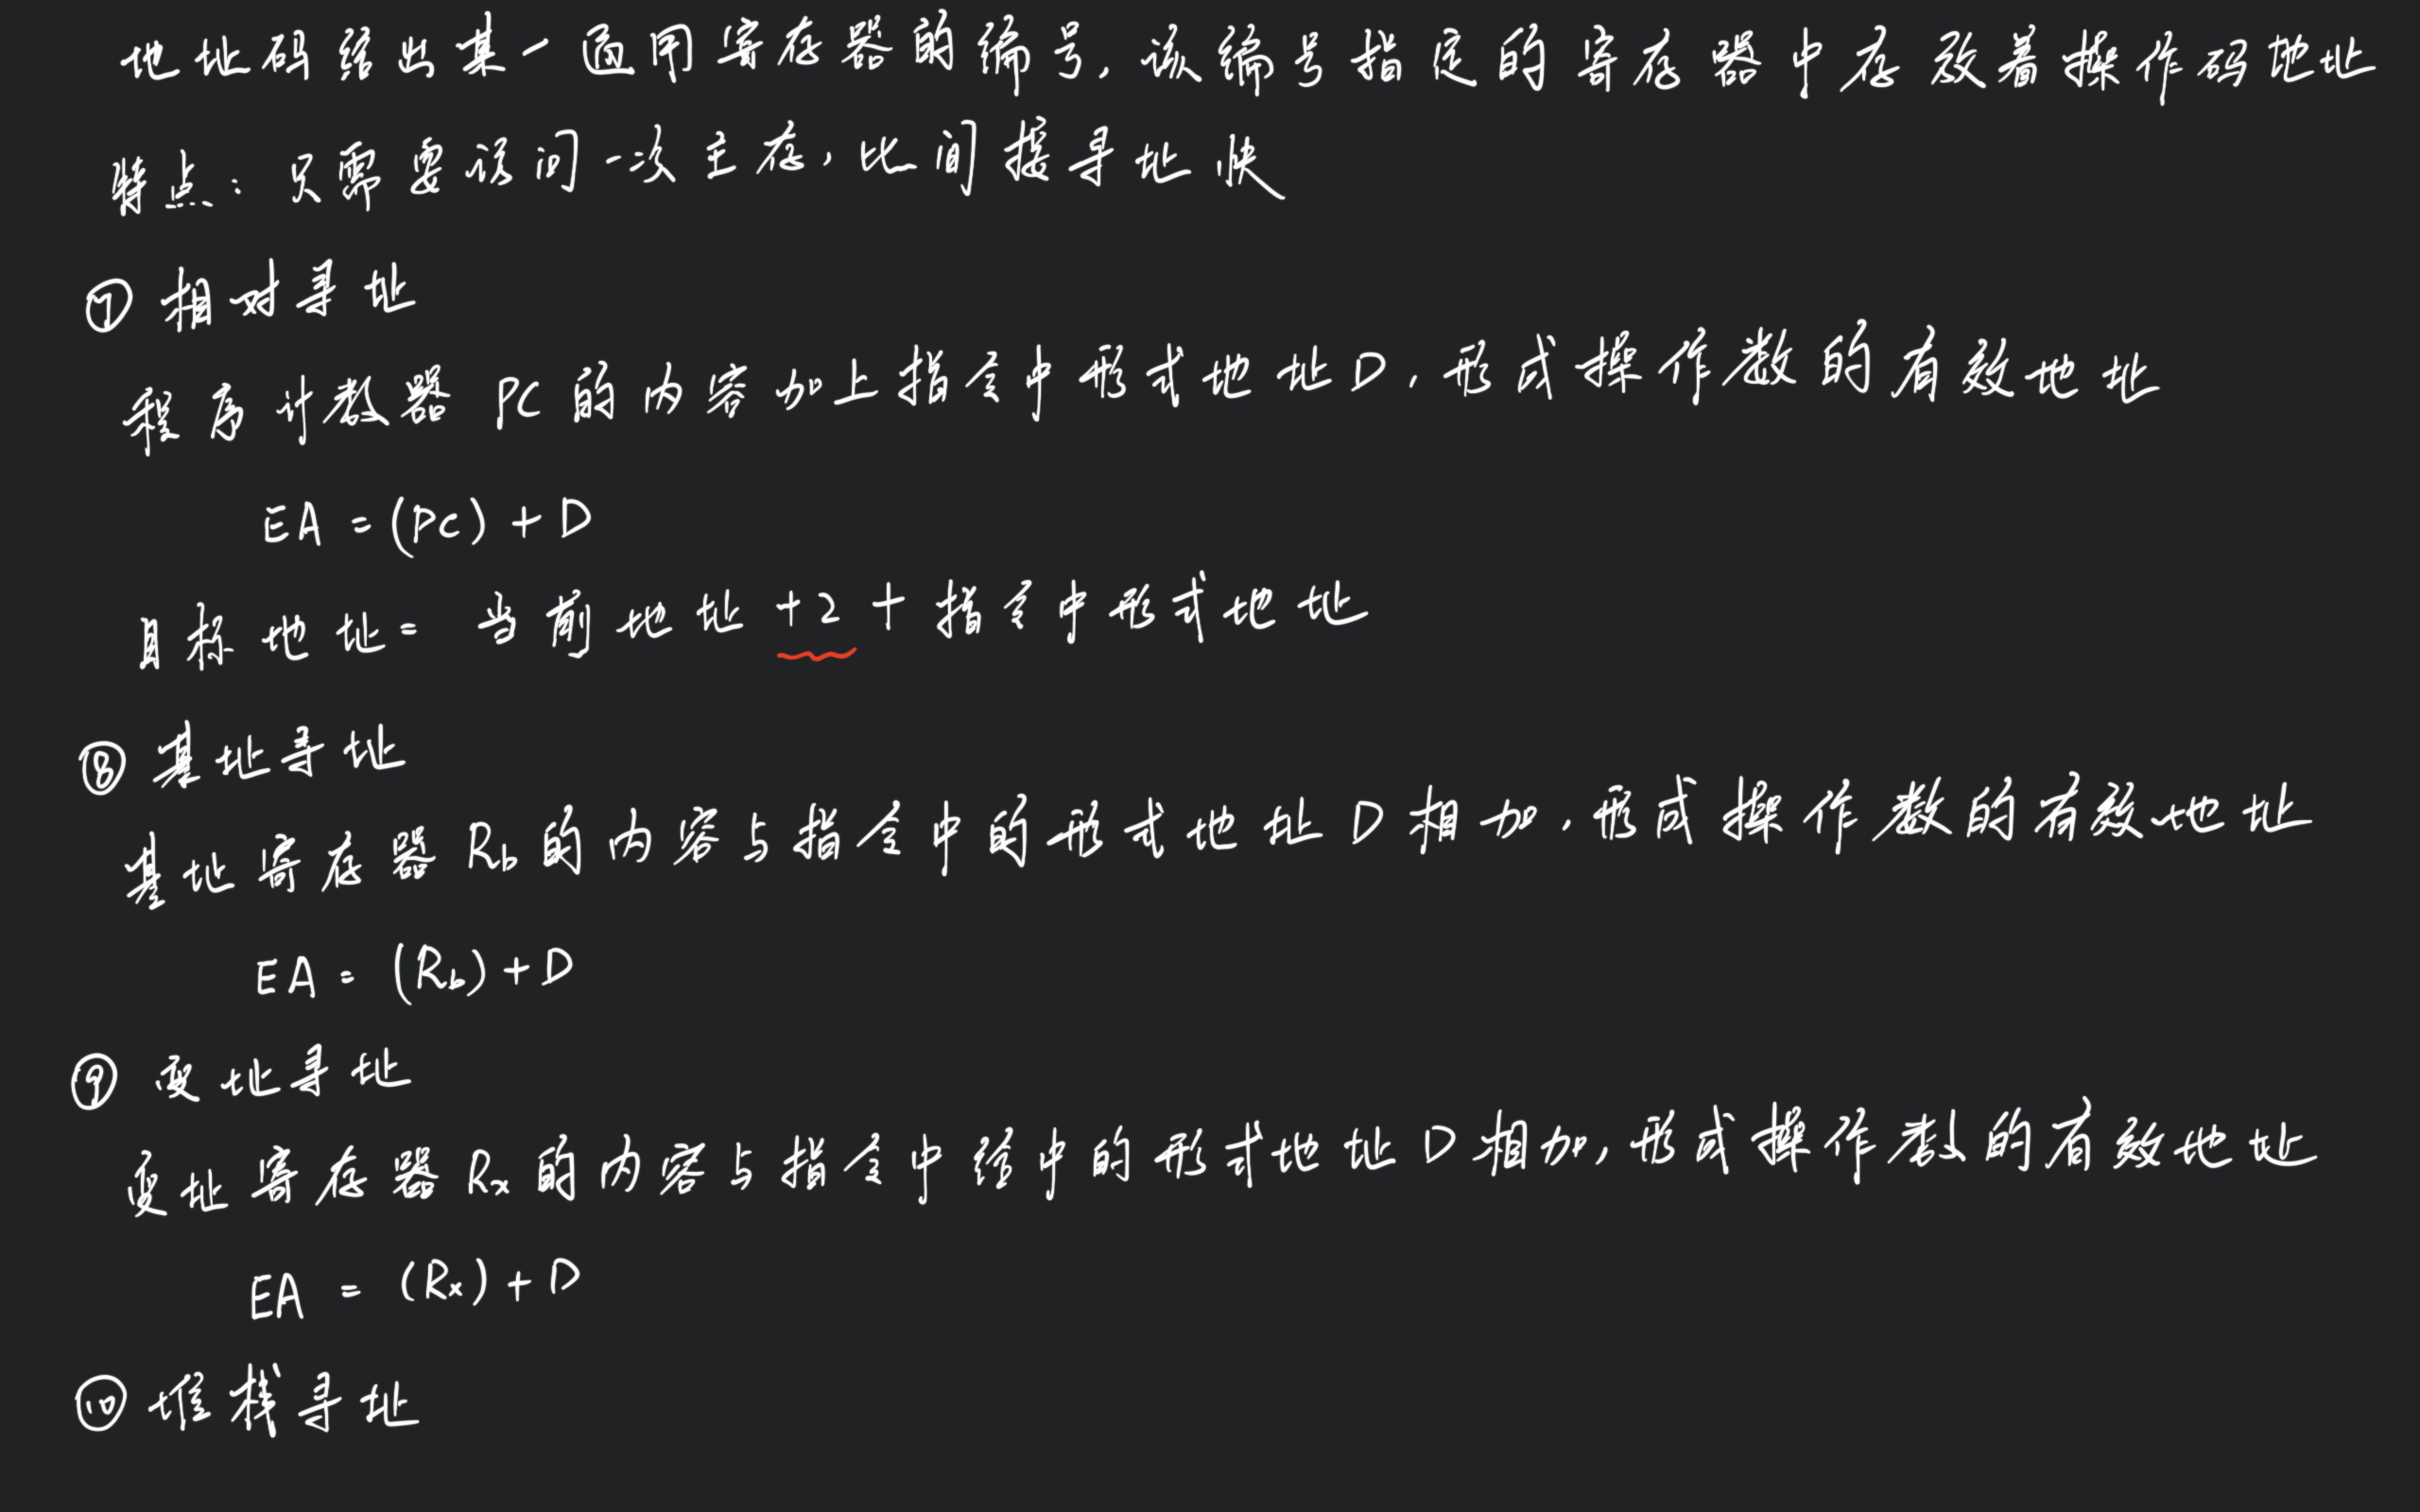 地址码给出某一通用寄存器的编号,该编号指定的寄存器中存放着操作码地址
特点:只需要访问一次主存,比间接寻址快
⑦ 相对寻址
程序计数器 PC 的内容加上指令中形式地址D,形成操作数的有效地址
EA = (PC) + D
目标地址 = 当前地址 +2 + 指令中形式地址
⑧ 基址寻址
基址寄存器 Rb 的内容与指令中的形式地址D相加,形成操作数的有效地址
EA = (Rb) + D
⑨ 变址寻址
变址寄存器 Rx 的内容与指令中给中的形式地址D相加,形成操作数的有效地址
EA = (Rx) + D
⑩ 堆栈寻址